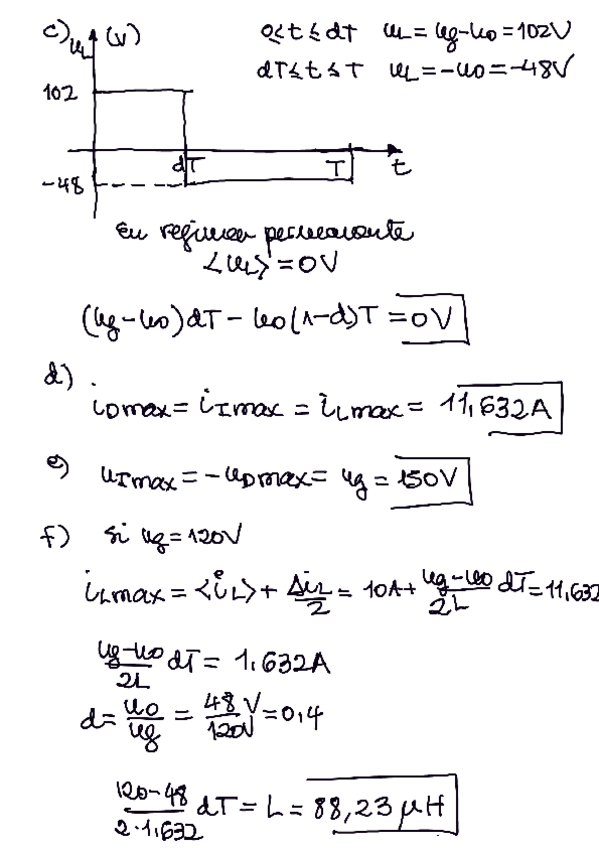 c) uL (V)
0≤t≤dT uL = ug-uo = 102V
dT≤t≤T uL = -uo = -48V
102
dT T t
-48
En regimen permanente
<uL> = 0V
(ug-uo)dT - uo(1-d)T = 0V
d)
iDmax = iTmax = iLmax = 11,632A
e) uTmax = -uDmax = ug = 150V
f) Si ug = 120V
iLmax = <iL> + ΔiL/2 = 10A + (ug-uo)/2L dT = 11,632
(ug-uo)/2L dT = 1.632A
d = uo/ug = 48V/120V = 0,4
(120-48)/(2·1,632) dT = L = 88,23 μH